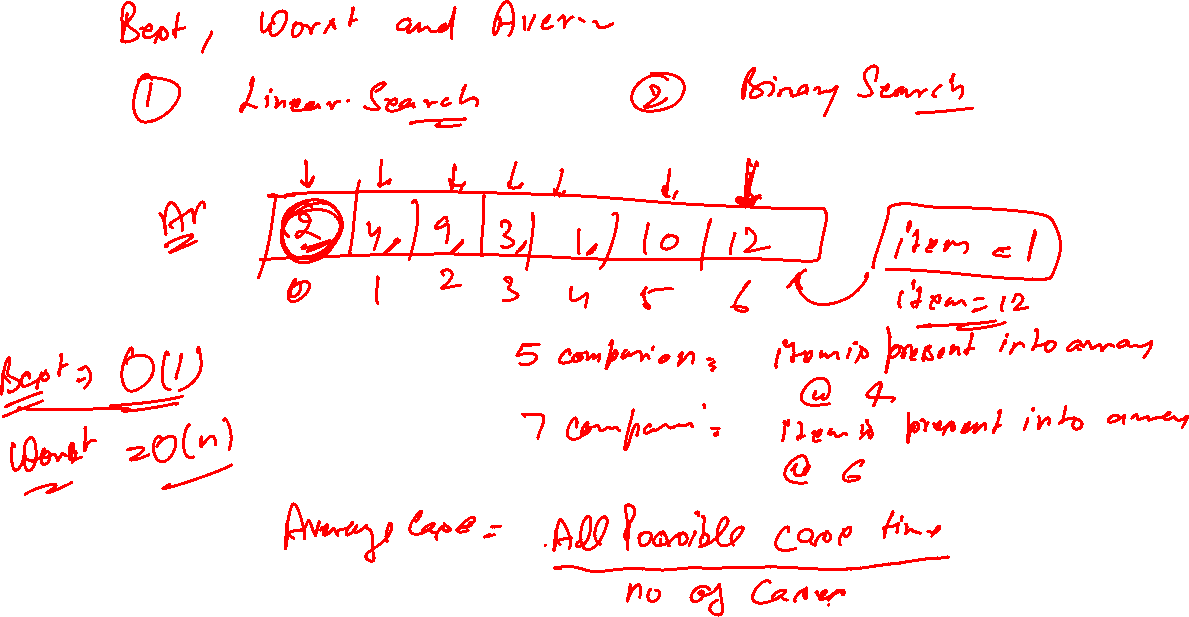 Best, Worst and Aver
① Linear Search ② Binary Search
Ar 2 4, 9, 3, 1, 10 12 item = 1
0 1 2 3 4 5 6 item = 12
5 comparion = item is present into array
@ 4
Best => O(1)
7 compari = item is present into array
@ 6
Worst = O(n)
Average Case = All Possible case time
no of Cases